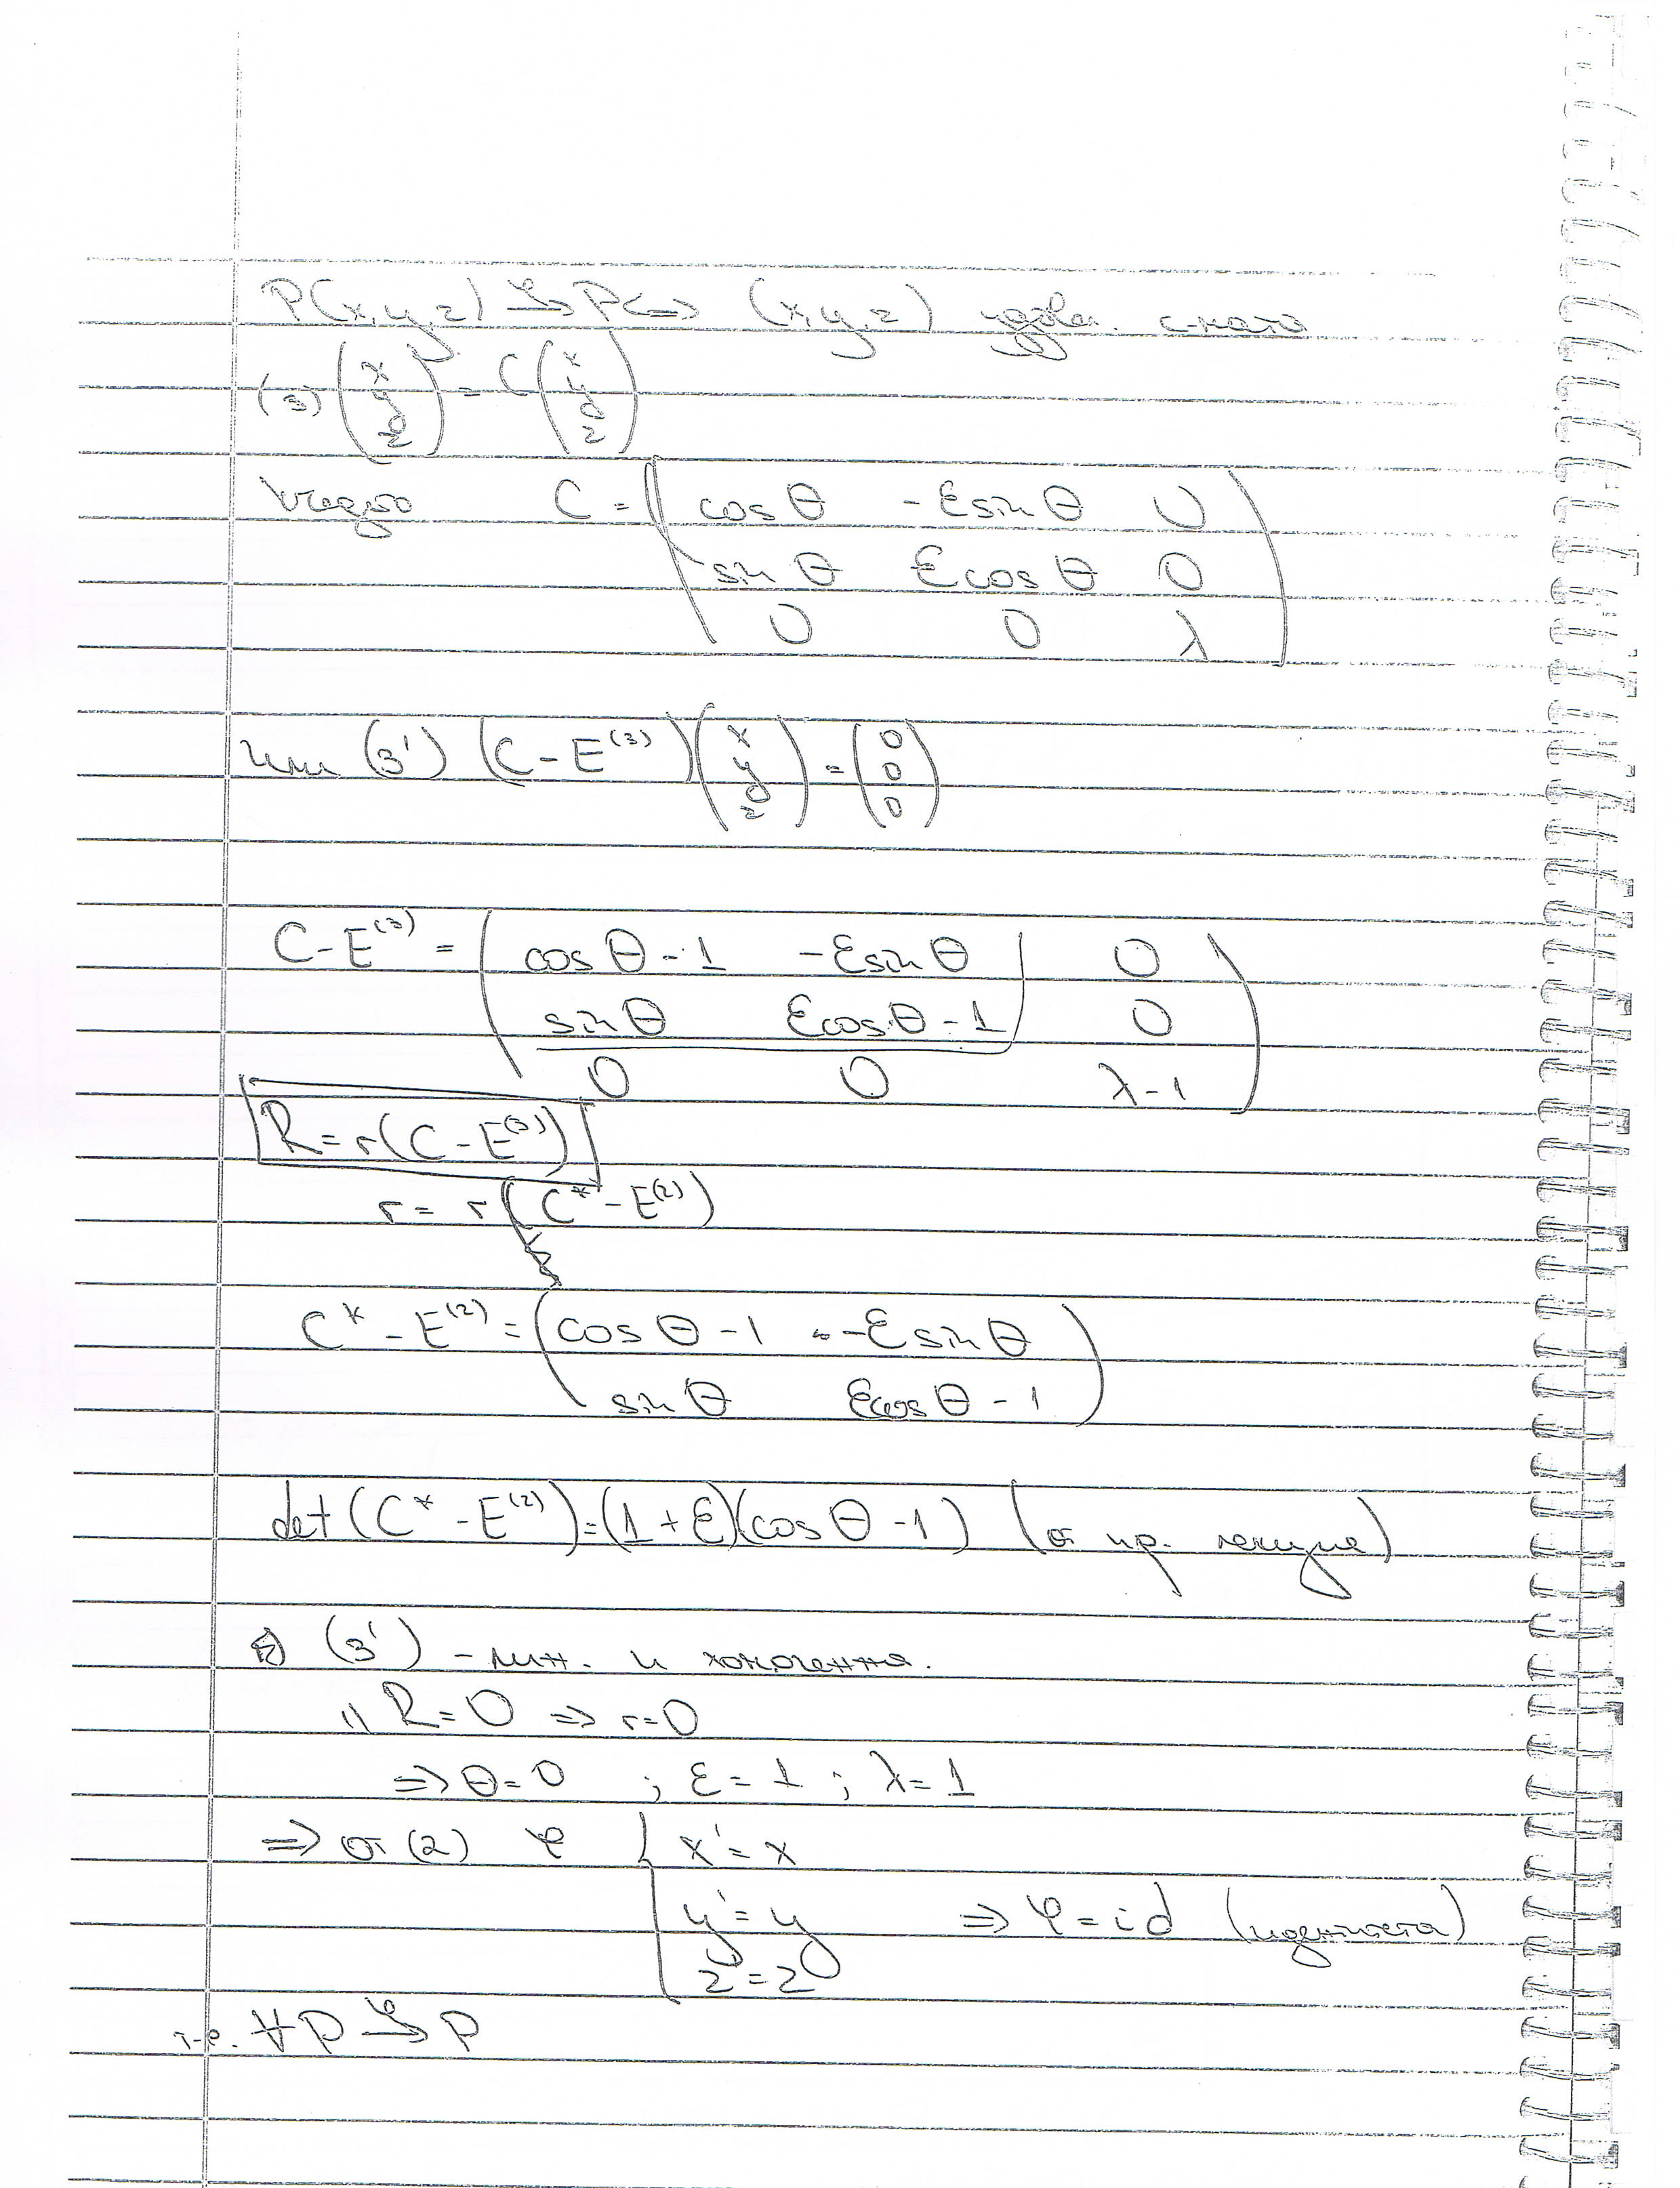 P(x,y,z) →φ P <=> (x,y,z) удовл. с-мата
(3) (x y z) = C (x y z)
където C = ( cos θ  -ε sin θ  0
sin θ  ε cos θ  0
0  0  λ )
или (3') (C - E⁽³⁾) (x y z) = (0 0 0)
C - E⁽³⁾ = ( cos θ - 1  -ε sin θ  0
sin θ  ε cos θ - 1  0
0  0  λ - 1 )
R = r(C - E⁽³⁾)
r = r(C* - E⁽²⁾)
C* - E⁽²⁾ = ( cos θ - 1  -ε sin θ
sin θ  ε cos θ - 1 )
det(C* - E⁽²⁾) = (1 + ε)(cos θ - 1) (от пр. лекция)
(3') - лин. и хомогенна.
1) R = 0 => r = 0
=> θ = 0 ; ε = 1 ; λ = 1
=> от (2) φ { x' = x
y' = y => φ = id (идентитета)
z' = z
т.е. ∀ P →φ P